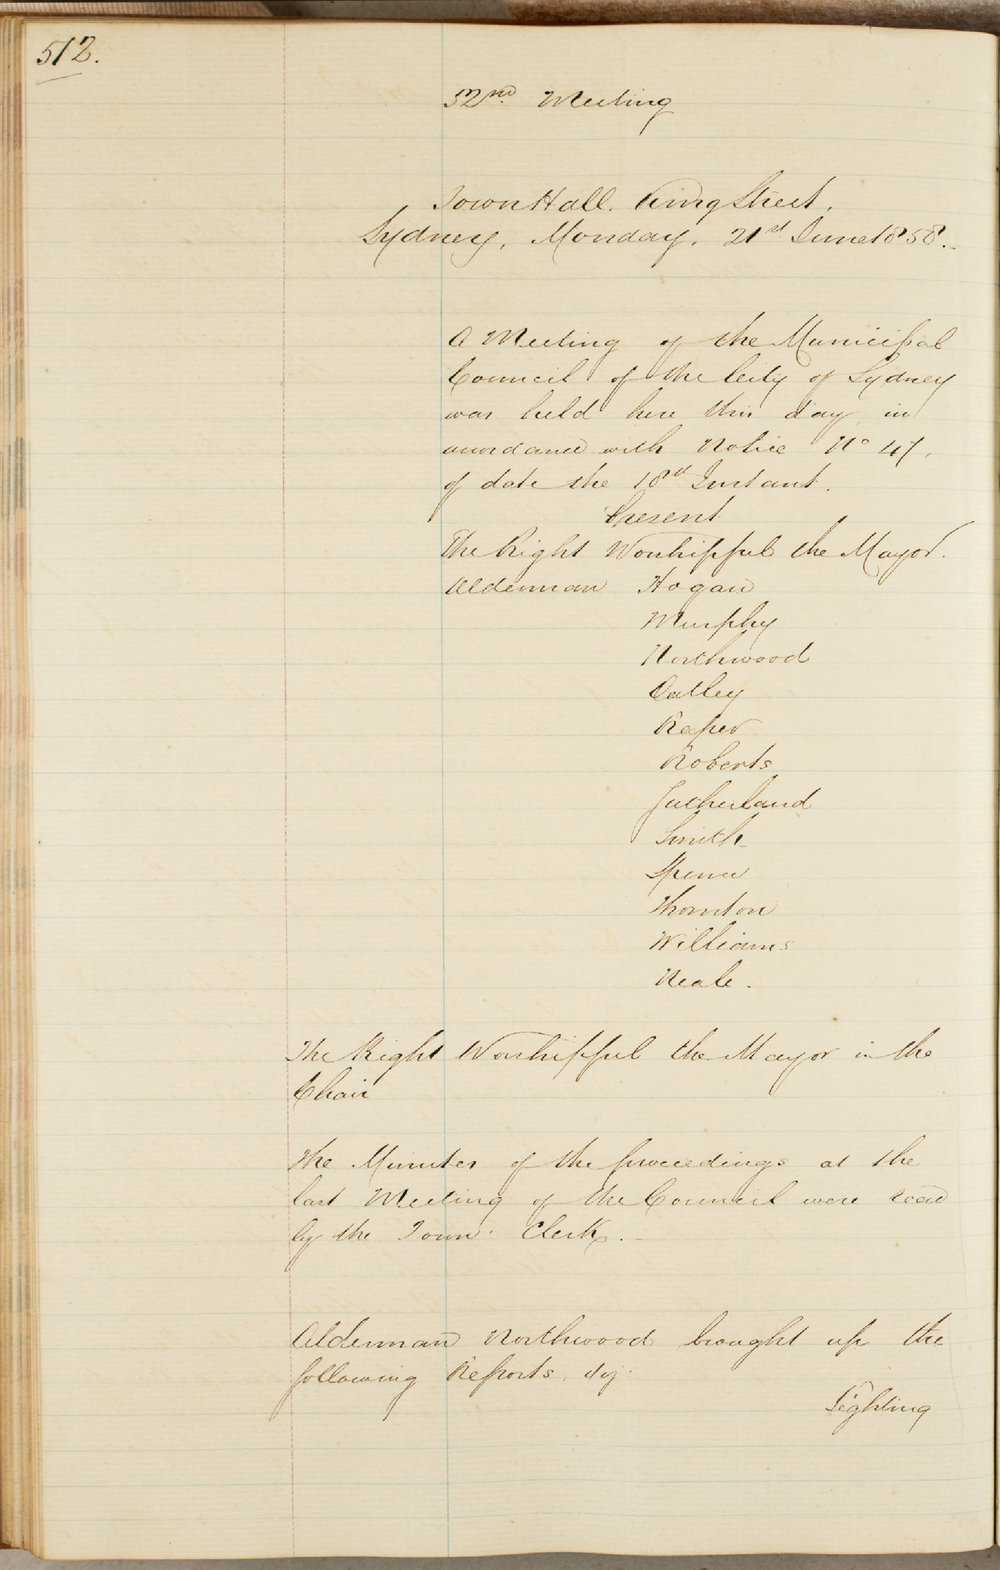 512.
52nd Meeting
Town Hall. King Street.
Sydney, Monday, 21st June 1858.
A Meeting of the Municipal
Council of the City of Sydney
was held here this day in
accordance with Notice No 47,
of date the 18th Instant.
Present
The Right Worshipful the Mayor.
Alderman Hogan
Murphy
Northwood
Oatley
Raper
Roberts
Sutherland
Smith
Spence
Thornton
Williams
Neale.
The Right Worshipful the Mayor in the
Chair
The Minutes of the proceedings at the
last Meeting of the Council were read
by the Town Clerk.
Alderman Northwood brought up the
following Reports,
Lighting